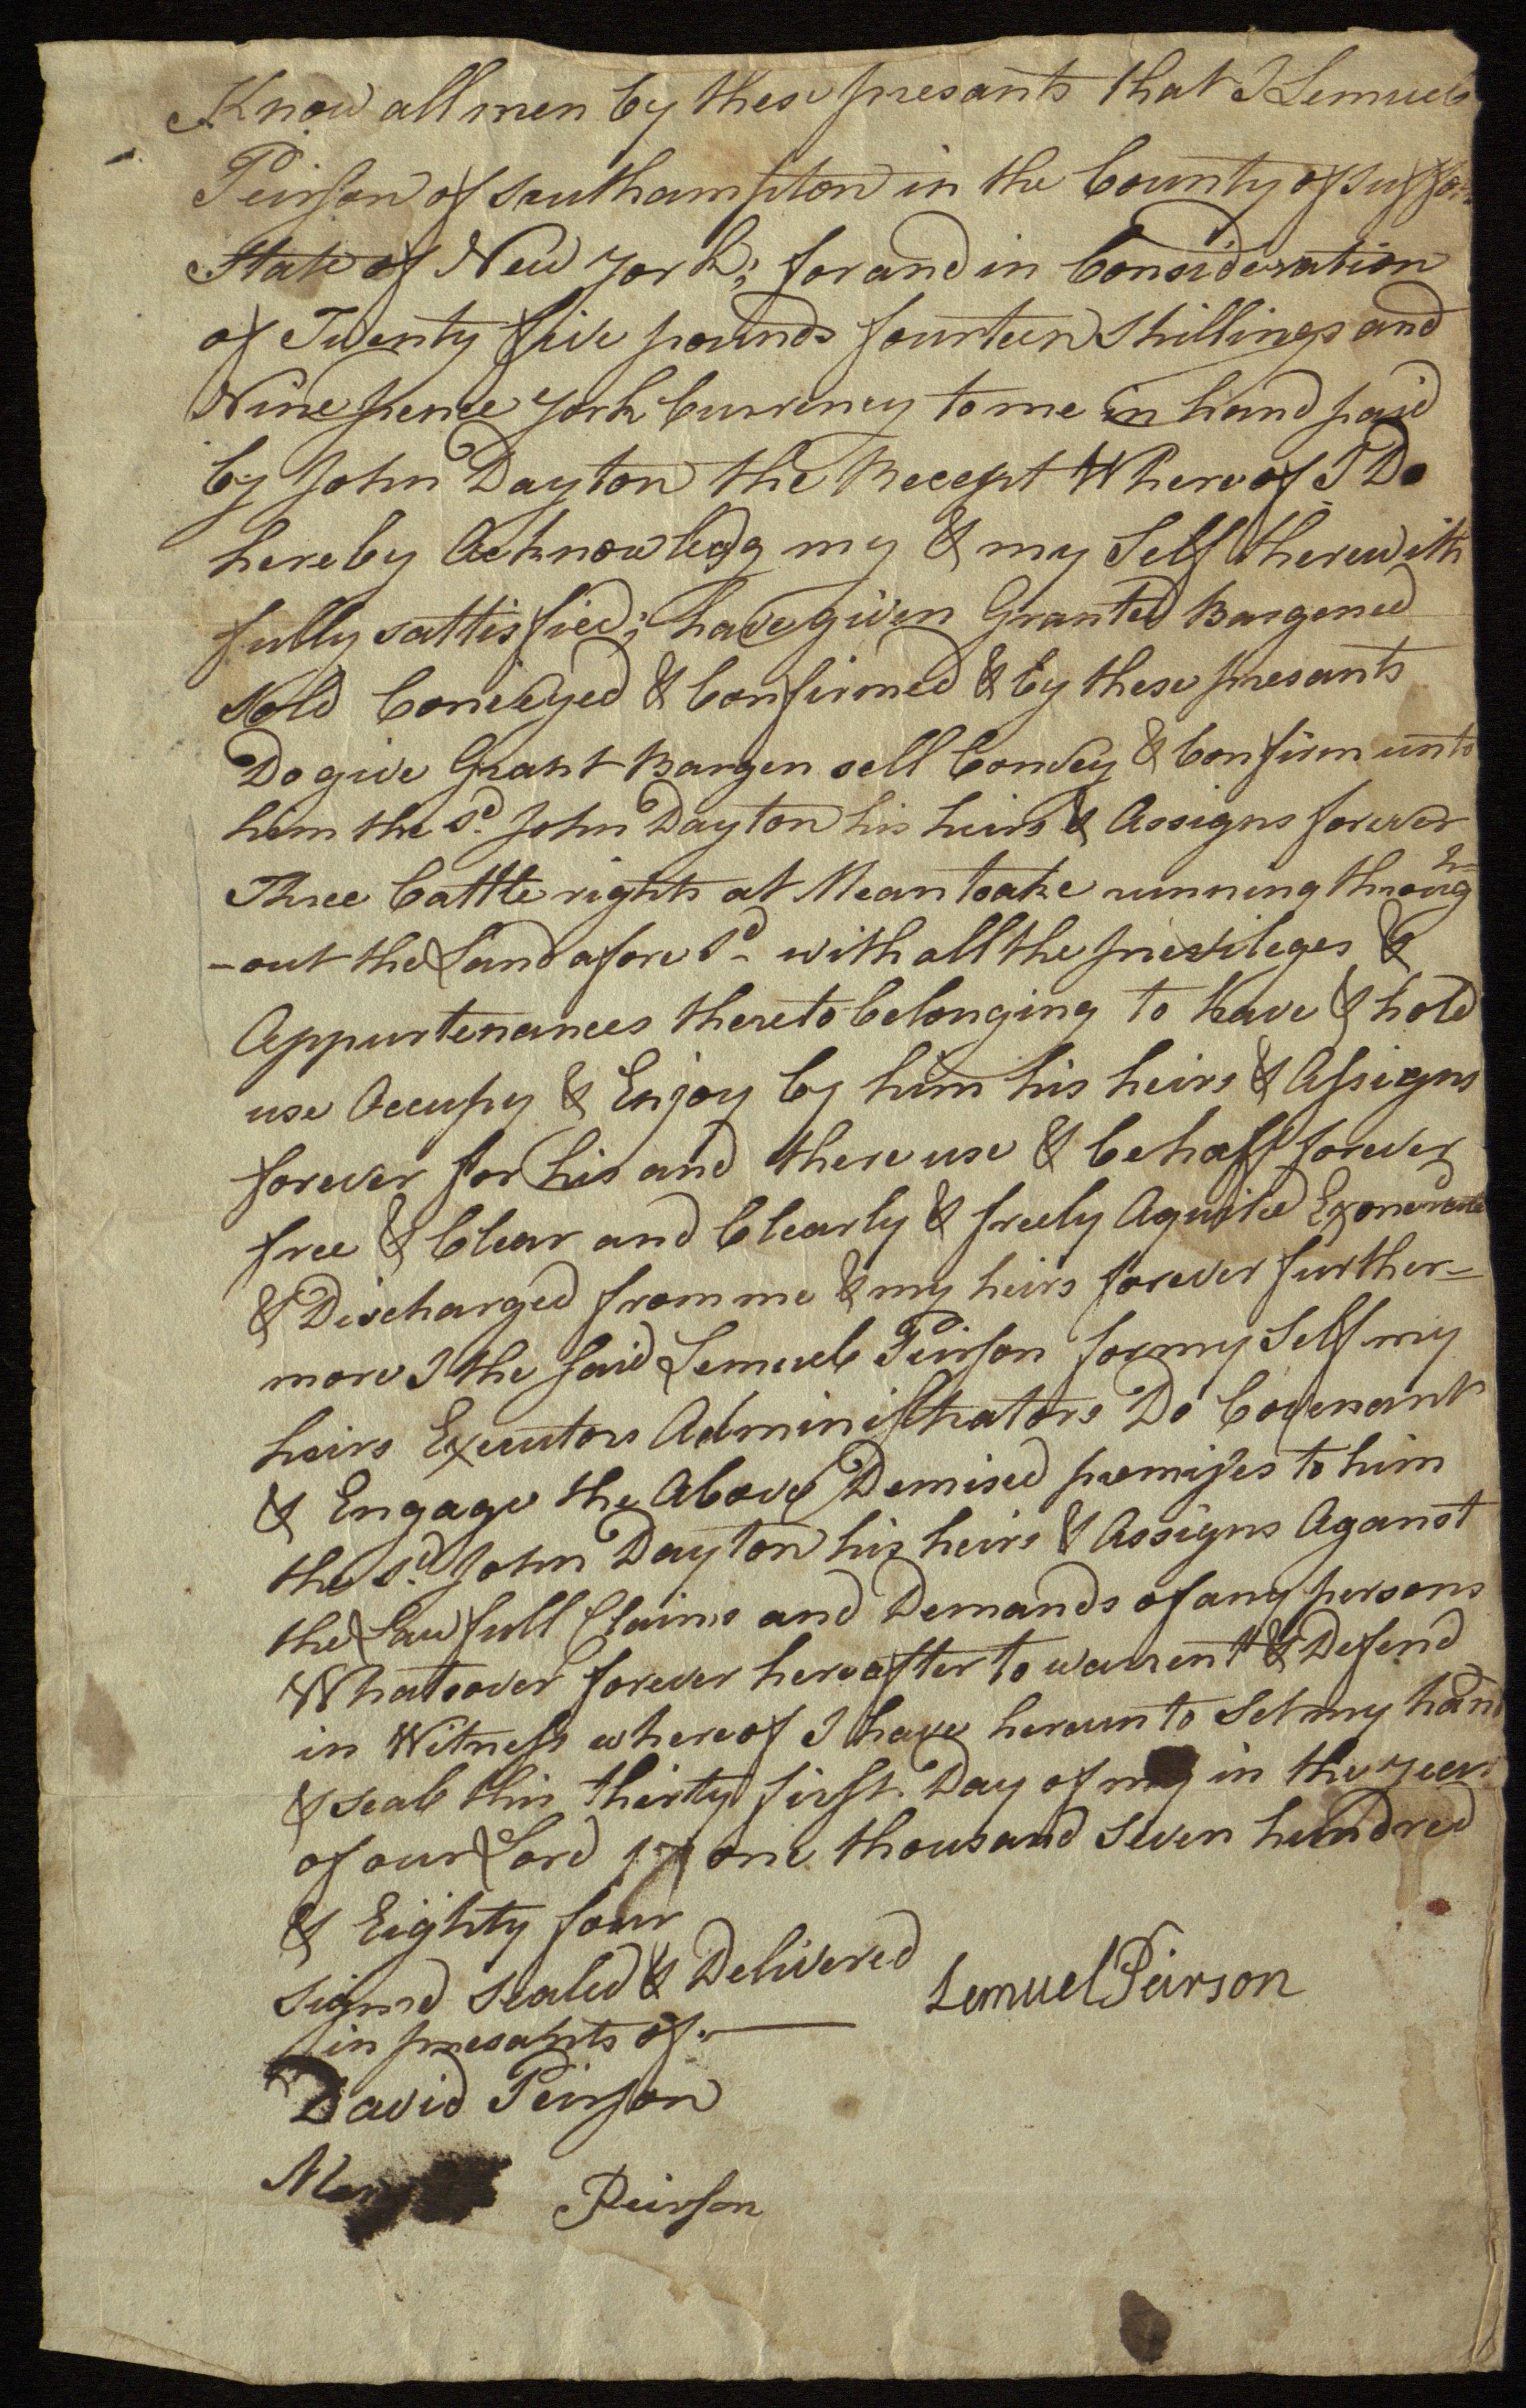 Know all men by these presants that I Lemuel
Peirson of Southampton in the County of Suffo
State of New york; for and in Consideration
of Twenty five pounds fourteen Shillings and
Nine pence york Currency to me in hand paid
by John Dayton the Recept Whereof I Do
hereby Acknowledg my & my Self therewith
fully sattisfied; have given Granted Bargened
Sold Conveyed & Confirmed & by these presants
Do give Grant Bargen sell Convey & Confirm unto
him the sd. John Dayton his heirs & Assigns forever
Three Cattle rights at Meantoake running throug=h
-out the Land afore sd- with all the privileges &
Appurtenances thereto belonging to have & hold
use Occupy & Enjoy by him his heirs & Assigns
forever for his and there use & behalf forever
free & Clear and Clearly & freely Aquited Exonerated
& Discharged from me & my heirs forever further=
more I the said Lemuel Peirson for my Self my
heirs Executors Administrators Do Covenant
& Engage the Above Demised premises to him
the sd. John Dayton his heirs & Assigns Aganst
the Lawfull Claims and Demands of any persons
Whatsover forever hereafter to warrent & Defend
in Witness whereof I have hereunto Set my hand
& seal this thirty first Day of may in the year
of our Lord 17 one thousand seven hundred
& Eighty four
signed sealed & Delivered
in presants of.
Lemuel Peirson
David Peirson
Peirson